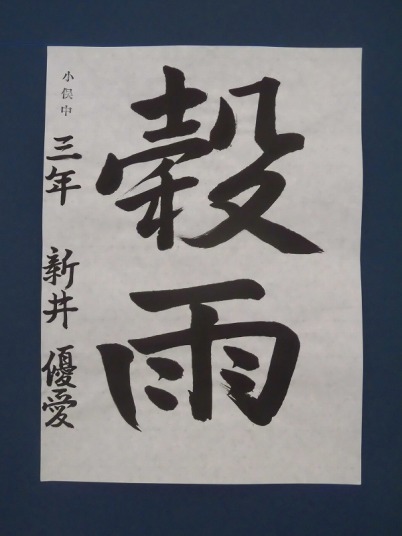 穀雨
小俣中
三年 新井 優愛